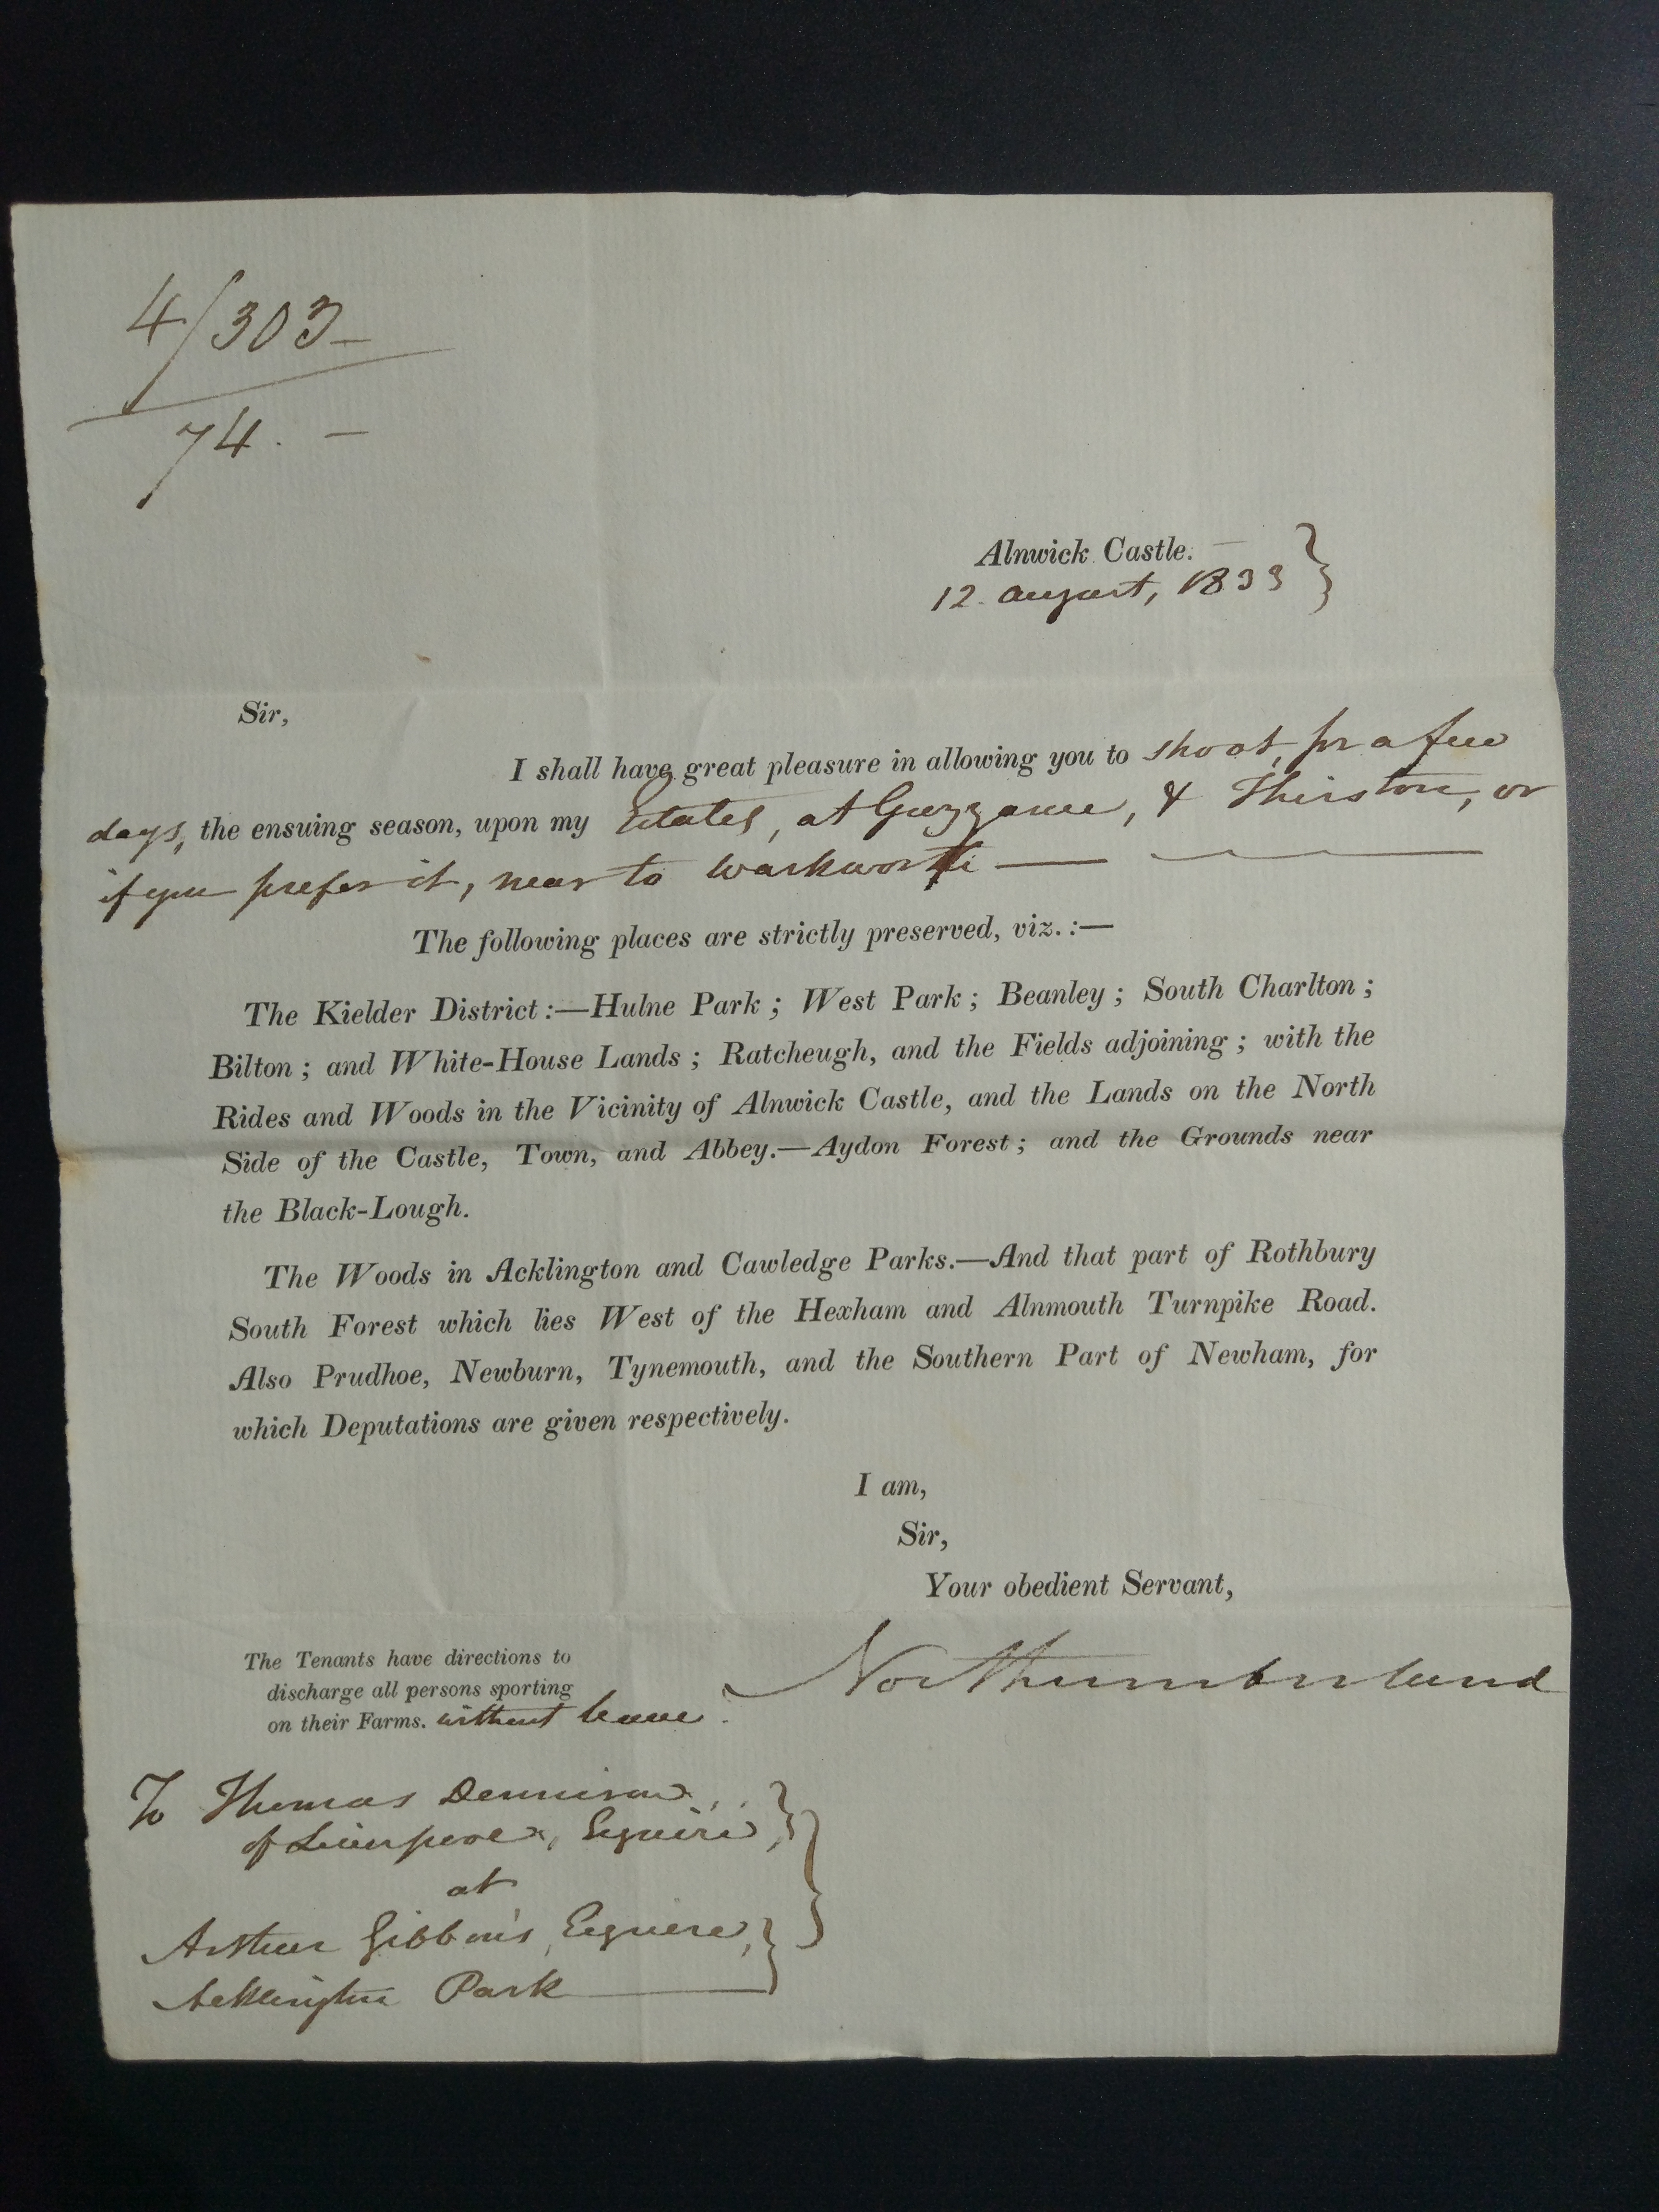 4/303-
74. -
Alnwick Castle. -
12. August, 1833
Sir,
I shall have great pleasure in allowing you to shoot, for a few
days, the ensuing season, upon my Estates, at Guyzance, & Thirston, or
if you prefer it, near to Warkworth
The following places are strictly preserved, viz.:—
The Kielder District:—Hulne Park; West Park; Beanley; South Charlton;
Bilton; and White-House Lands; Ratcheugh, and the Fields adjoining; with the
Rides and Woods in the Vicinity of Alnwick Castle, and the Lands on the North
Side of the Castle, Town, and Abbey.—Aydon Forest; and the Grounds near
the Black-Lough.
The Woods in Acklington and Cawledge Parks.—And that part of Rothbury
South Forest which lies West of the Hexham and Alnmouth Turnpike Road.
Also Prudhoe, Newburn, Tynemouth, and the Southern Part of Newham, for
which Deputations are given respectively.
I am,
Sir,
Your obedient Servant,
Northumberland
The Tenants have directions to
discharge all persons sporting
on their Farms. without leave.
To Thomas Dennison,
of Liverpool, Esquire,
at
Arthur Gibbon's, Esquire,
Acklington Park